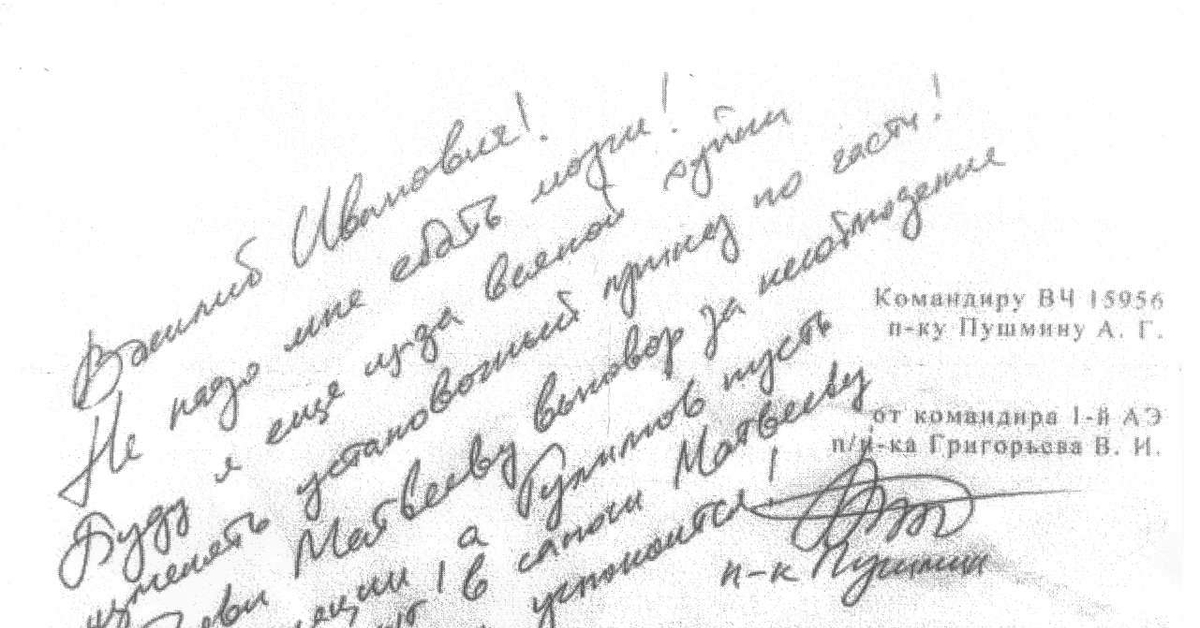 Василий Иванович!
Не надо мне ебать мозги!
Буду я еще из-за всякой хуйни
изменять установочный приказ по части!
Матвееву выговор за несоблюдение
а Гулимов пусть
в сапоги Матвееву
успокоится!
п-к Пушмин
Командиру ВЧ 15956
п-ку Пушмину А. Г.
от командира 1-й АЭ
п/п-ка Григорьева В. И.